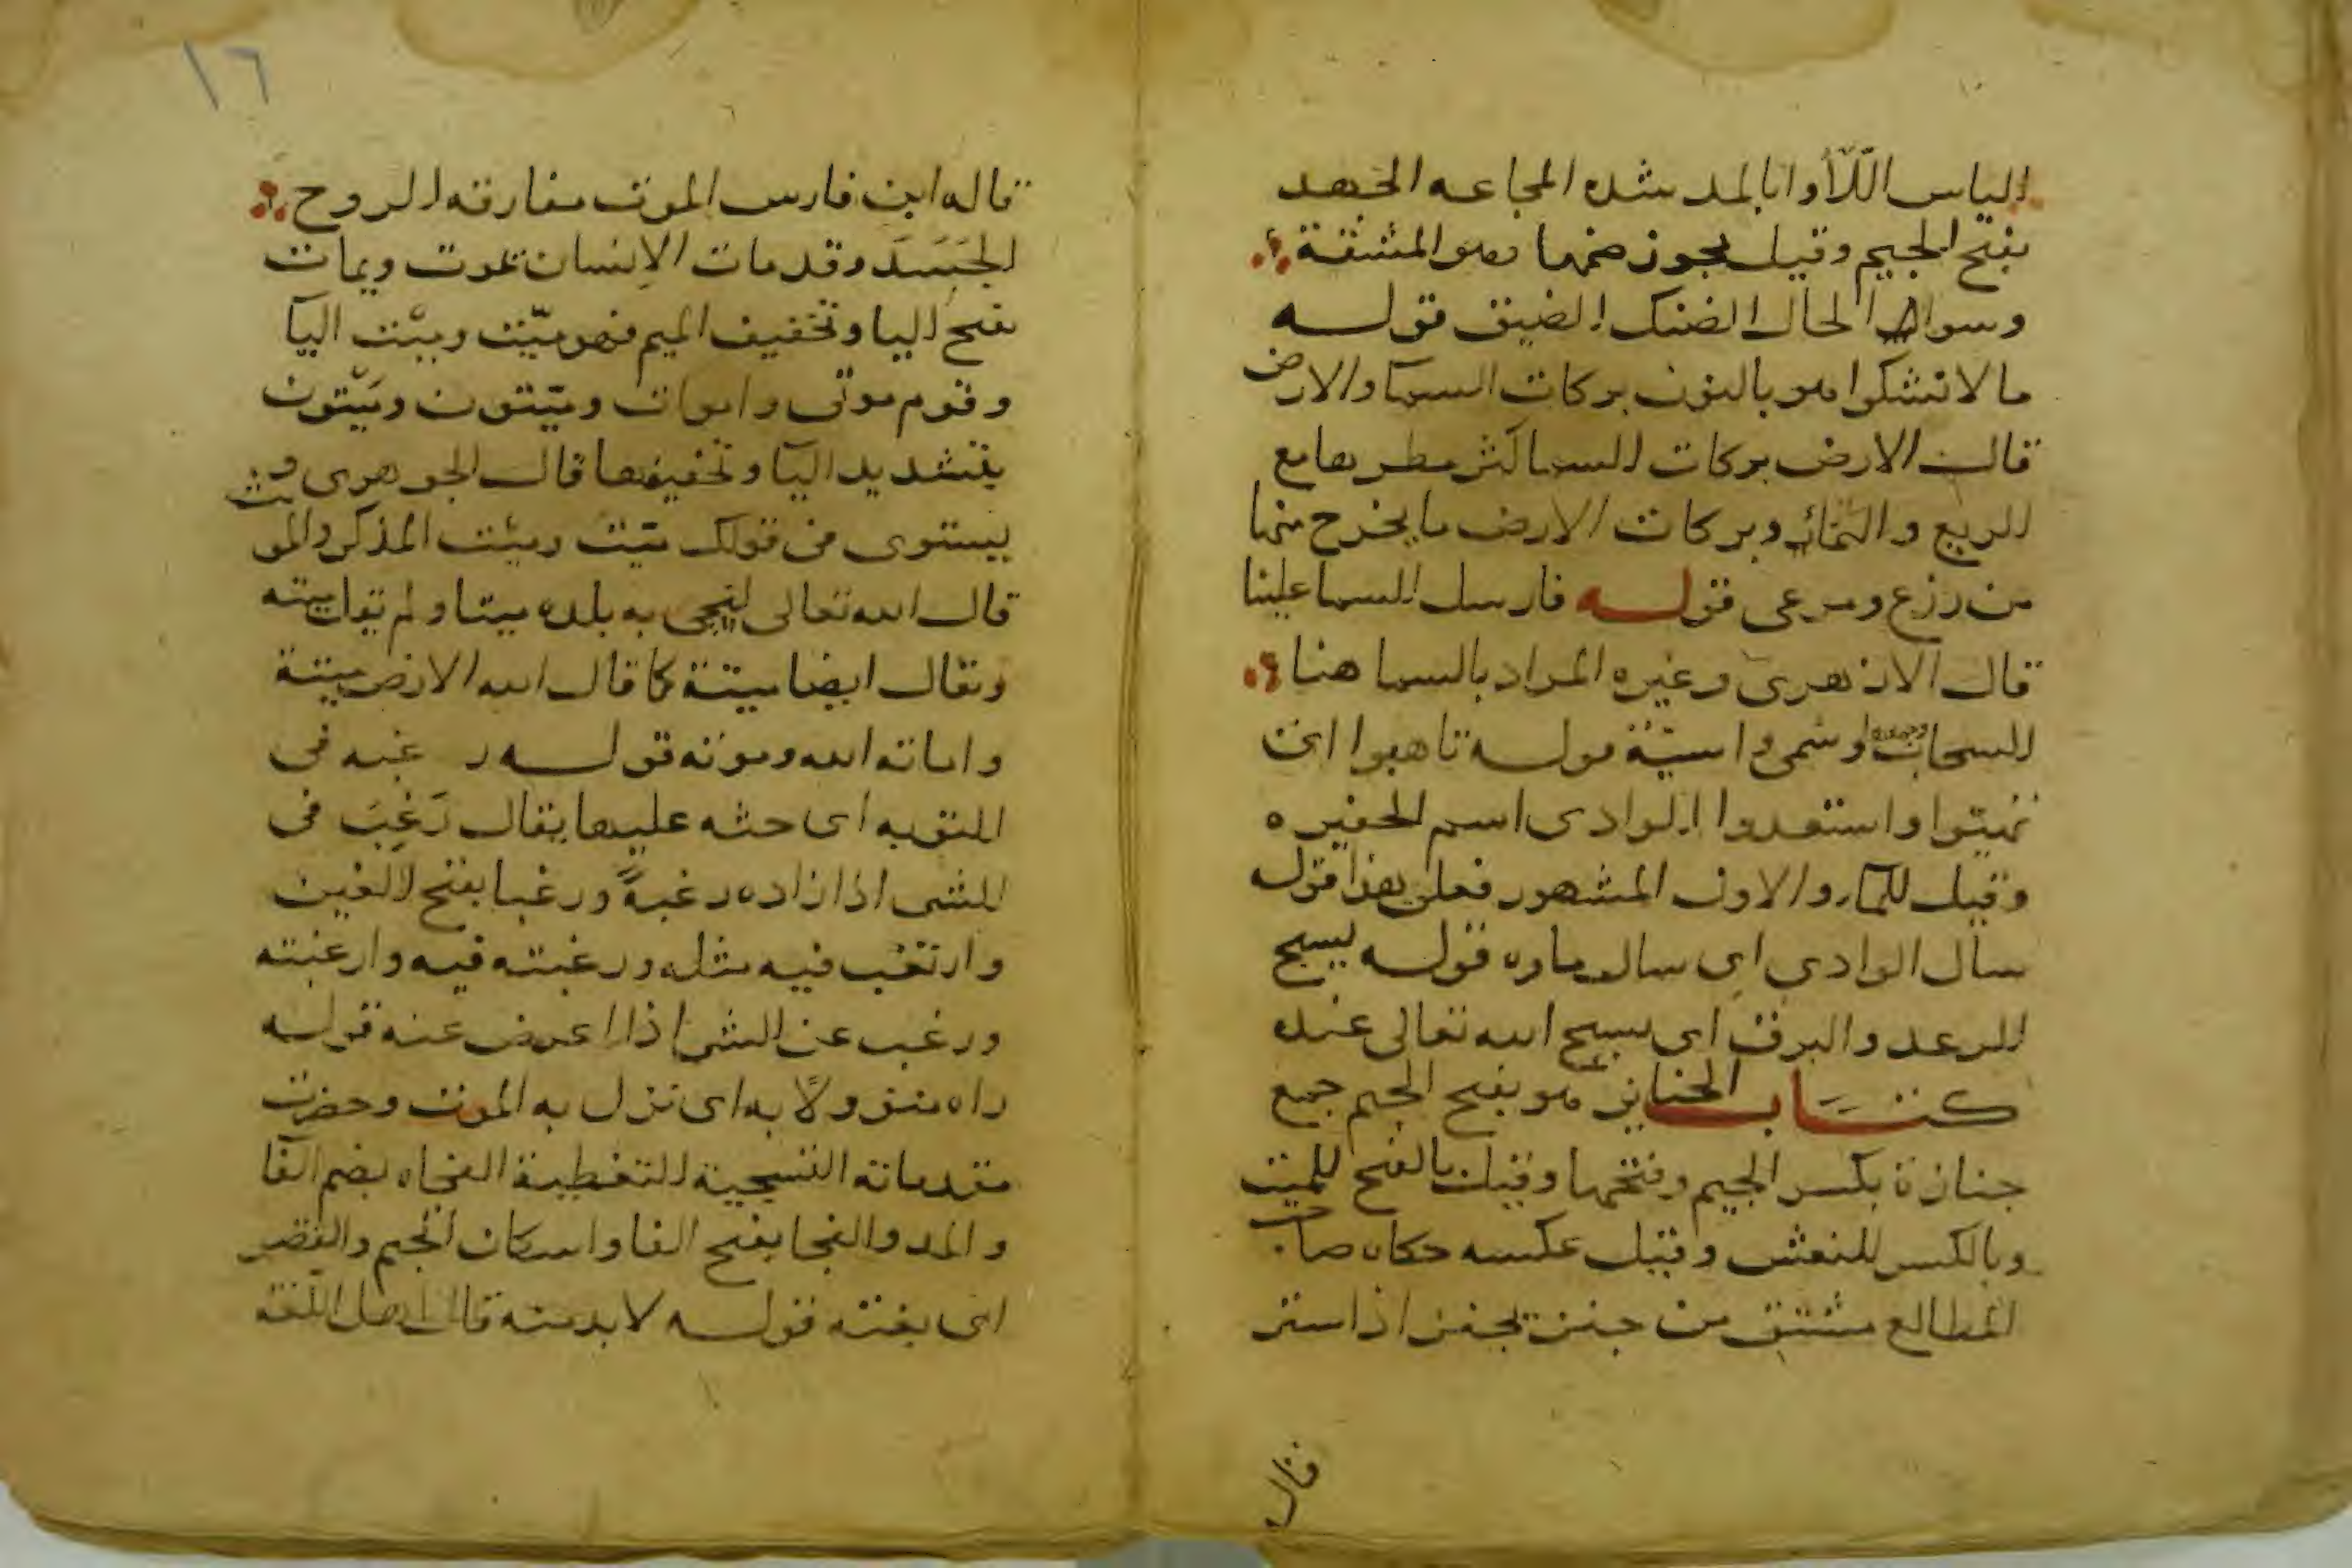 الياس اللّأوا بالمد شده المجاعه الجهد
بفتح الجيم وقيل يجوز ضمها وهو المشقة
وسوا الحال الضنك الضيق قولـه
ما لا نشكوا هو بالنون بركات السما والارض
قال الارض بركات السما كثر مطرها مع
الريع والثمار وبركات الارض ما يخرج منها
من زرع ومرعى قولـه فارسل السما علينا
قال الازهرى وغيره المراد بالسما هنا
السحاب وسمى واسيّة قولـه تاهبوا اى
تهيّوا واستعدوا الوادى اسم الحفيره
وقيل للما والاول المشهور فعلى هذا قولـه
سال الوادي اى سال ماوه قولـه يسبح
الرعد والبرق اى يسبح الله تعالى عنده
كتـاب الجنايز هو بفتح الجيم جمع
جنازة بكسر الجيم وفتحها وقيل بالفتح للميت
وبالكسر للنعش وقيل عكسه حكاه صاحب
المطالع مشتق من جنز يجنز اذا ستر
قال
١٦
قاله ابن فارس الموت مفارقه الروح
الجَسَدَ وقد مات الانسان يموت ويمات
بفتح اليا وتخفيف الميم فهو ميّت وميْت اليا
وقوم موتى واموات وميّتون وميْتون
بتشديد اليا وتخفيفها قال الجوهرى و
يستوى فى قولك ميّت وميْت المذكر والمونث
قال الله تعالى لنحيى به بلده ميتا ولم يقل ميته
ويقال ايضا ميتة كما قال الله الارض ميتة
واماته الله وموته قولـه رغبه فى
التوبه اى حثه عليها يقال رَغِبَ فى
الشى اذا اراده رغبةً ورغبا بفتح الغين
وارتغب فيه مثله ورغبته فيه وارغبته
ورغب عن الشى اذا اعرض عنه قولـه
راه منزولًا به اى نزل به الموت وحضرت
مقدماته التسجية التغطية الفجاه بضم الفا
والمد والفجا بفتح الفا واسكان الجيم والقصر
اى بغته قولـه لا بد منه قال اهل اللغة